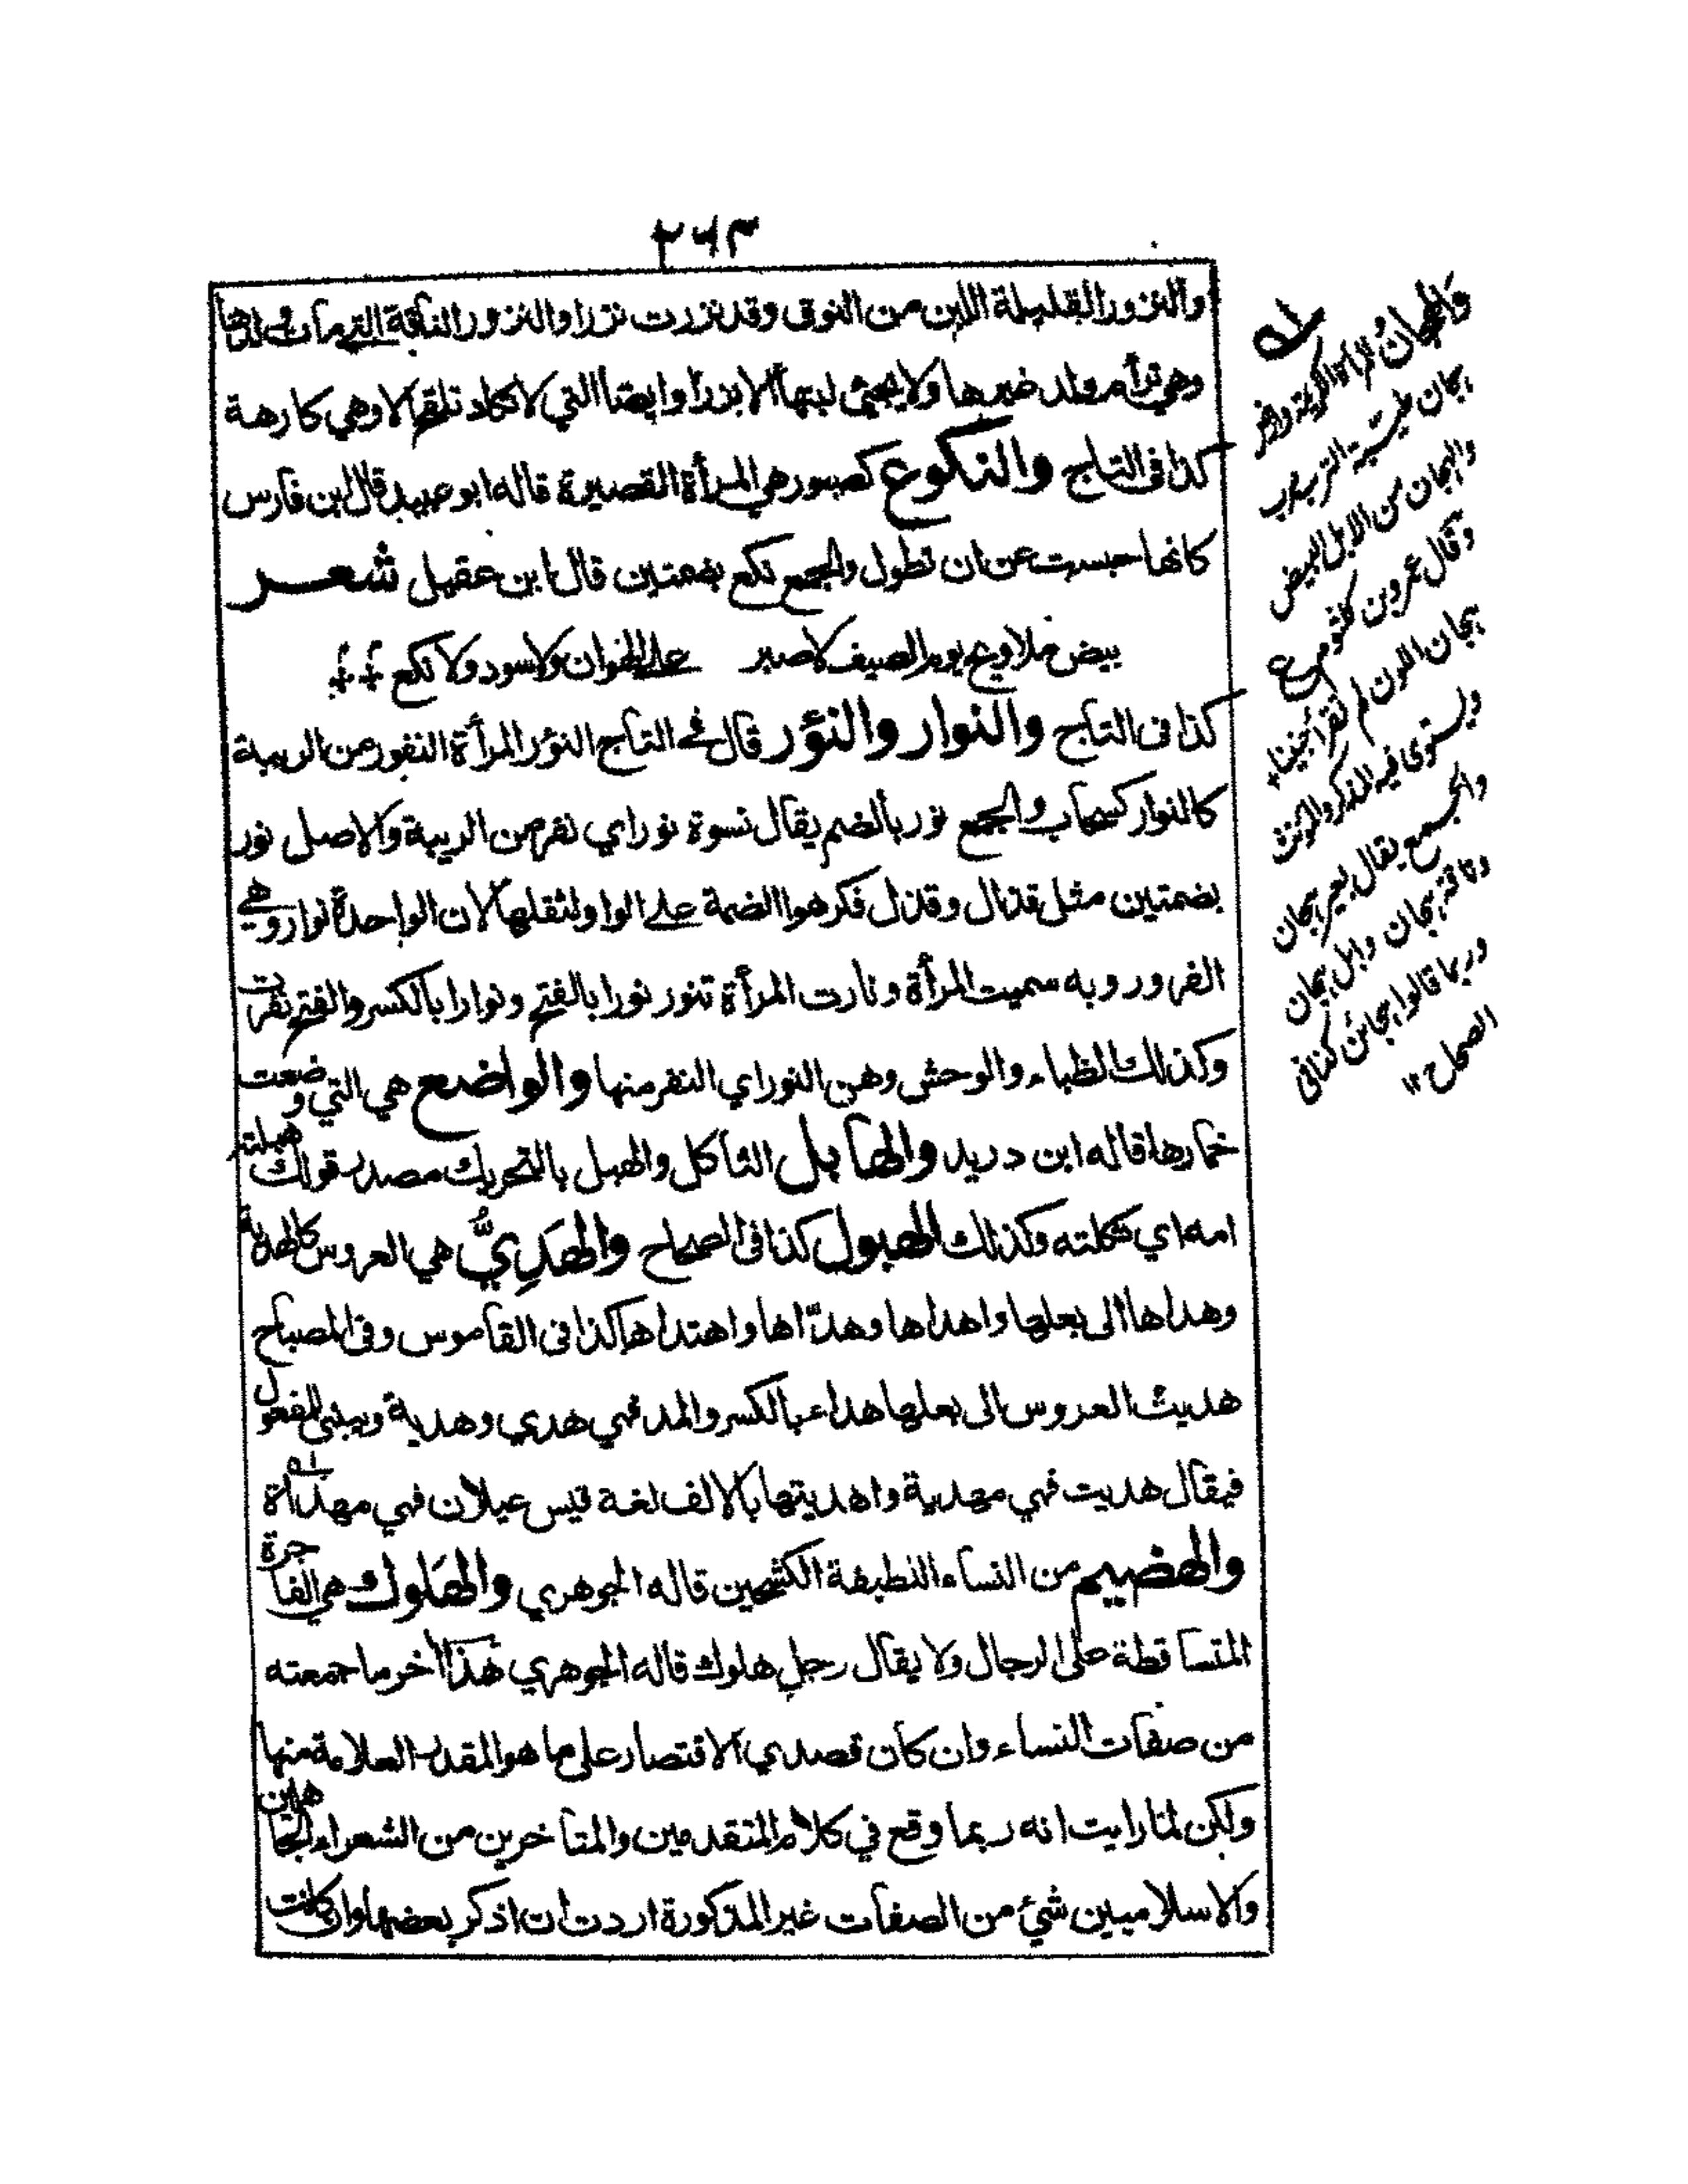 ٢٦٣
والنزور القليلة اللبن من النوق وقد نزرت نزرا والنزور الناقة التي مات ولدها
وهي ترأم ولد غيرها ولا يجيئ لبنها الا نزرا وايضا التي لا تكاد تلقح الا وهي كارهة
كذا في التاج والنكوع كصبور هي المرأة القصيرة قاله ابو عبيد قال ابن فارس
كانها حبست عن ان تطول والجمع نكع بضمتين قال ابن عقيل شعر
بيض ملاويح يوم الصيف لا صبر على الهوان ولا سود ولا نكع
كذا في التاج والنوار والنؤر قال في التاج النؤر المرأة النفور من الريبة
كالنوار كسحاب والجمع نور بالضم يقال نسوة نور اي نفر من الريبة والاصل نور
بضمتين مثل قذال وقذل فكرهوا الضمة على الواو لثقلها لان الواحدة نوار وهي
الفرور وبه سميت المرأة ونارت المرأة تنور نورا بالفتح ونوارا بالكسر والفتح نفرت
وكذلك الظباء والوحش وهن النور اي النفر منها والواضع هي التي وضعت
خمارها قاله ابن دريد والهابل الثاكل والهبل بالتحريك مصدر قولك هبلته
امه اي ثكلته وكذلك الهبول كذا في الصحاح والهَدِيُّ هي العروس كالهدية
وهداها الى بعلها واهداها وهدّاها واهتداها كذا في القاموس وفي المصباح
هديت العروس الى بعلها هداء بالكسر والمد فهي هدي وهدية ويبنى للمفعول
فيقال هديت فهي مهدية واهديتها بالالف لغة قيس عيلان فهي مهداة
والهضيم من النساء اللطيفة الكشحين قاله الجوهري والهَلوك هي الفاجرة
المتساقطة على الرجال ولا يقال رجل هلوك قاله الجوهري هذا آخر ما جمعته
من صفات النساء وان كان قصدي الاقتصار على ما هو المقدر العلامة منها
ولكن لما رايت انه ربما وقع في كلام المتقدمين والمتأخرين من الشعراء الجاهلين
والاسلاميين شيئ من الصفات غير المذكورة اردت ان اذكر بعضها وان كانت
والهجان المرأة الكريمة وارض
هجان طيبة الترب
والهجان من الابل البيض
وقال عمرو بن كلثوم ع
هجان اللون لم تقرأ جنينا
ويستوي فيه المذكر والمؤنث
والجمع يقال بعير هجان
وناقة هجان وابل هجان
وربما قالوا هجائن كذا في
الصحاح ١٢